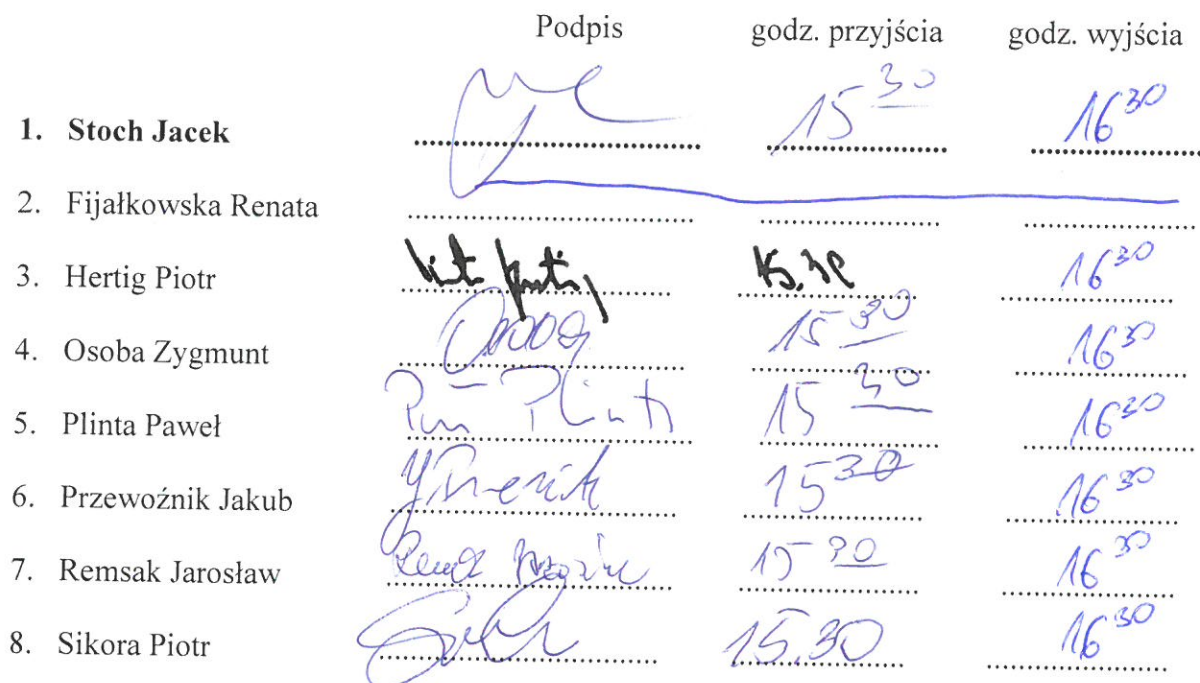 Podpis godz. przyjścia godz. wyjścia
1. Stoch Jacek 15 30 16 30
2. Fijałkowska Renata
3. Hertig Piotr 15.30 16 30
4. Osoba Zygmunt 15 30 16 30
5. Plinta Paweł Plinta 15 30 16 30
6. Przewoźnik Jakub 15 30 16 30
7. Remsak Jarosław 15 30 16 30
8. Sikora Piotr 15.30 16 30